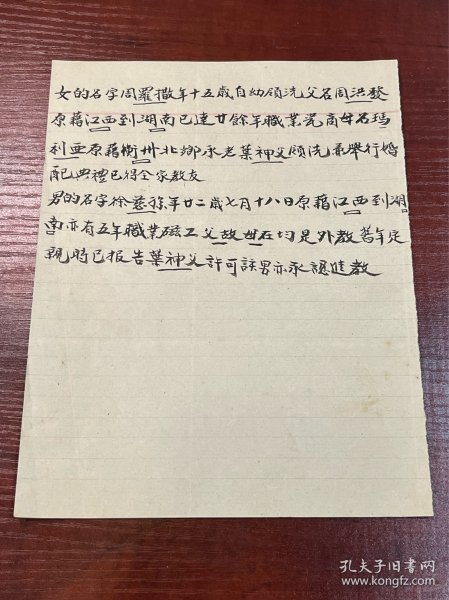 女的名字周羅撒年十五歲自幼領洗父名周洪發
原藉江西到湖南已達廿餘年職業瓷商母名瑪
利亜原藉衡州北鄉承老葉神父領洗兼舉行婚
配典禮已得全家教友
男的名字徐慈孫年廿二歲七月十八日原藉江西到湖
南亦有五年職業磁工父故母在均是外教舊年定
親時已报告葉神父許可該男亦承認進教
孔夫子旧书网
www.kongfz.com